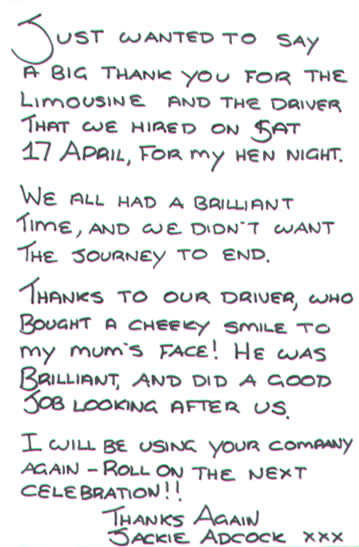 Just wanted to say
a big thank you for the
Limousine and the driver
that we hired on Sat
17 April, for my hen night.
We all had a brilliant
time, and we didn't want
the journey to end.
Thanks to our driver, who
bought a cheeky smile to
my mum's face! He was
brilliant, and did a good
job looking after us.
I will be using your company
again – roll on the next
celebration!!
Thanks Again
Jackie Adcock xxx